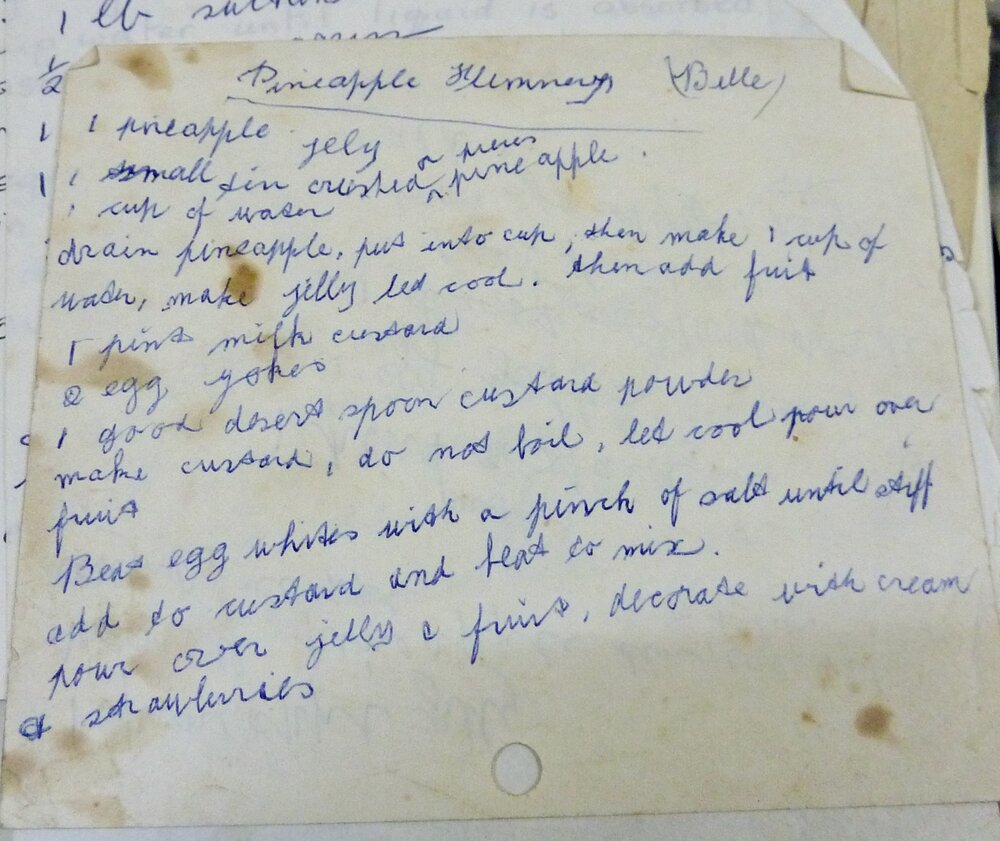 1 lb
1/2
Pineapple Flummery (Belle)
1 pineapple jely
1 small tin crushed or pieces pineapple.
1 cup of water
drain pineapple, put into cup, then make 1 cup of
water, make jelly let cool. then add fruit
1 pint milk custard
2 egg yokes
1 good desert spoon custard powder
make custard, do not boil, let cool pour over
fruit
Beat egg whites with a pinch of salt until stiff
add to custard and beat to mix.
pour over jelly & fruit, decorate with cream
& strawberries